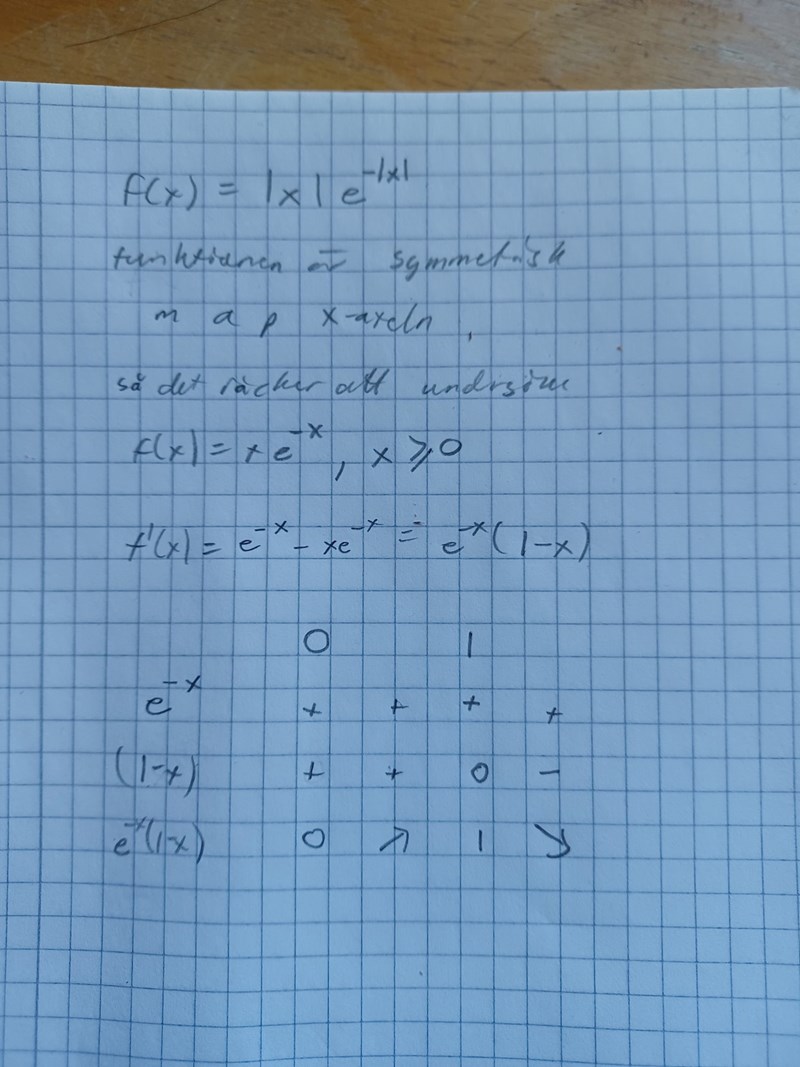 f(x) = |x| e^{-|x|}
funktionen är symmetrisk
m a p x-axeln,
så det räcker att undrsöka
f(x) = x e^{-x}, x ⩾ 0
f'(x) = e^{-x} - xe^{-x} = e^{-x}(1-x)
0 1
e^{-x} + + + +
(1-x) + + 0 -
e^{-x}(1-x) 0 ↗ 1 ↘